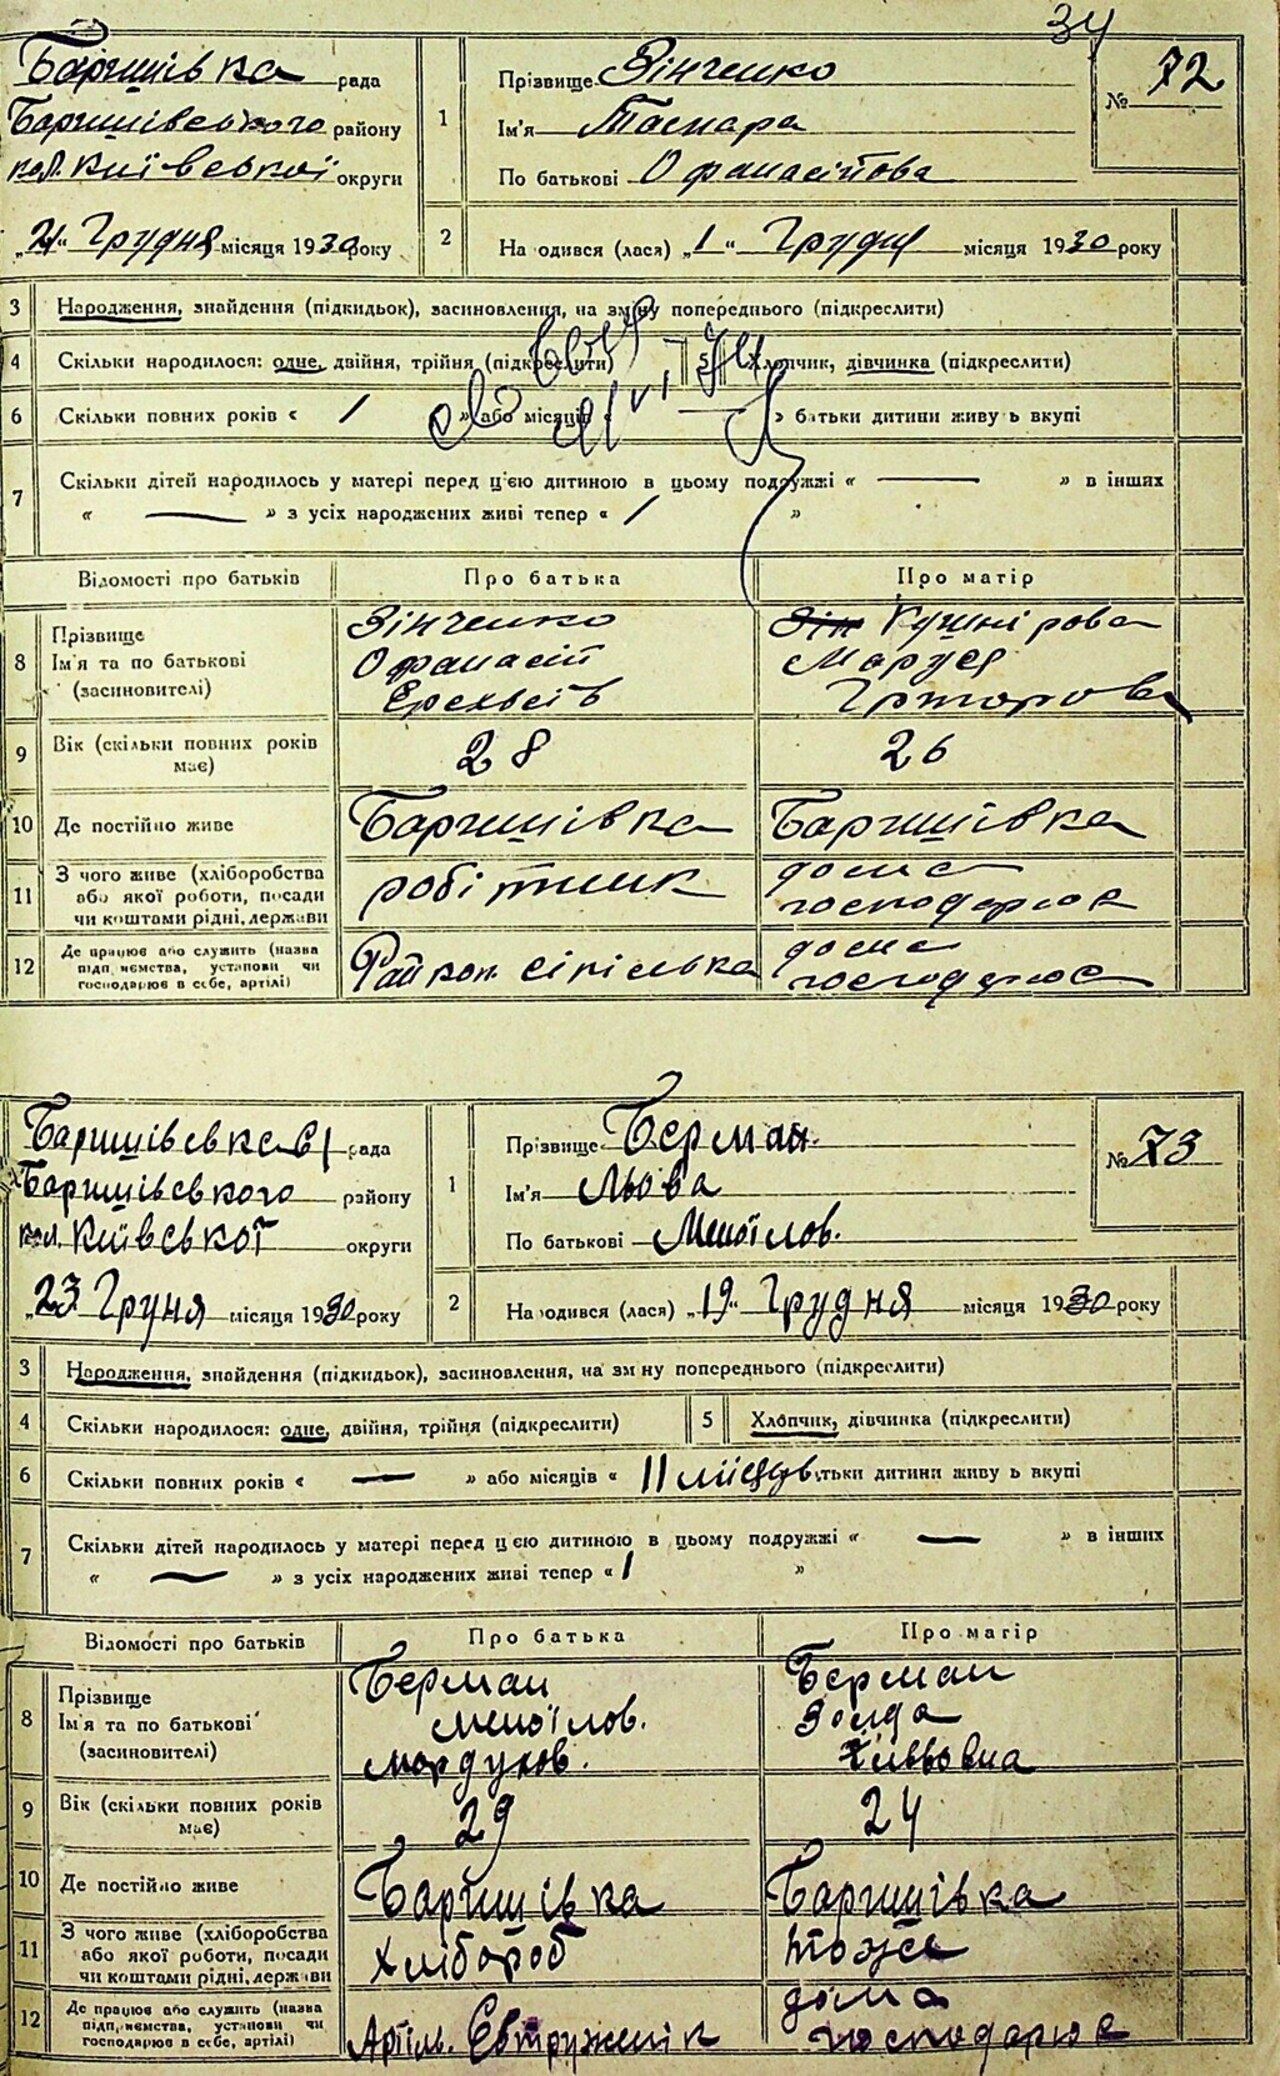 34
Баришівка рада
Баришівського району
кол. Київської округи
„21“ Грудня місяця 1930 року
1
Прізвище Зінченко
Ім'я Тамара
По батькові Офанасійова
№ 72
2
На одився (лася) „1“ Грудня місяця 1930 року
3 Народження, знайдення (підкидьок), засиновлення, на зміну попереднього (підкреслити)
4 Скільки народилося: одне, двійня, трійня (підкреслити) 5 Хлопчик, дівчинка (підкреслити)
6 Скільки повних років « / » або місяців « — » батьки дитини живу ь вкупі
7 Скільки дітей народилось у матері перед цією дитиною в цьому подружжі « — » в інших
« — » з усіх народжених живі тепер « / »
Відомості про батьків Про батька Про матір
8 Прізвище
Ім'я та по батькові
(засиновителі)
Зінченко
Офанасій
Зін Кушнірова
Маруся
9 Вік (скільки повних років має) 28 26
10 Де постійно живе Баришівка Баришівка
11 З чого живе (хліборобства
або якої роботи, посади
чи коштами рідні, держави
робітник
дома
господарює
12 Де працює або служить (назва
підприємства, установи чи
господарює в себе, артілі)
дома
господарює
рада
Баришівського району
кол. Київської округи
„23 Груня місяця 1930 року
1
Прізвище Берман
Ім'я Льова
По батькові Маноілов.
№ 73
2
На одився (лася) „19“ Грудня місяця 1930 року
3 Народження, знайдення (підкидьок), засиновлення, на зм ну попереднього (підкреслити)
4 Скільки народилося: одне, двійня, трійня (підкреслити) 5 Хлопчик, дівчинка (підкреслити)
6 Скільки повних років « — » або місяців « 11 місяців тьки дитини живу ь вкупі
7 Скільки дітей народилось у матері перед цією дитиною в цьому подружжі « — » в інших
« — » з усіх народжених живі тепер « 1 »
Відомості про батьків Про батька Про матір
8 Прізвище
Ім'я та по батькові
(засиновителі)
Берман
Маноілов.
Мордухов.
Берман
9 Вік (скільки повних років має) 29 24
10 Де постійно живе Баришівка Баришівка
11 З чого живе (хліборобства
або якої роботи, посади
чи коштами рідні, держави
Хлібороб
тоже
12 Де працює або служить (назва
підприємства, установи чи
господарює в себе, артілі)
Артіль.
дома
господарює